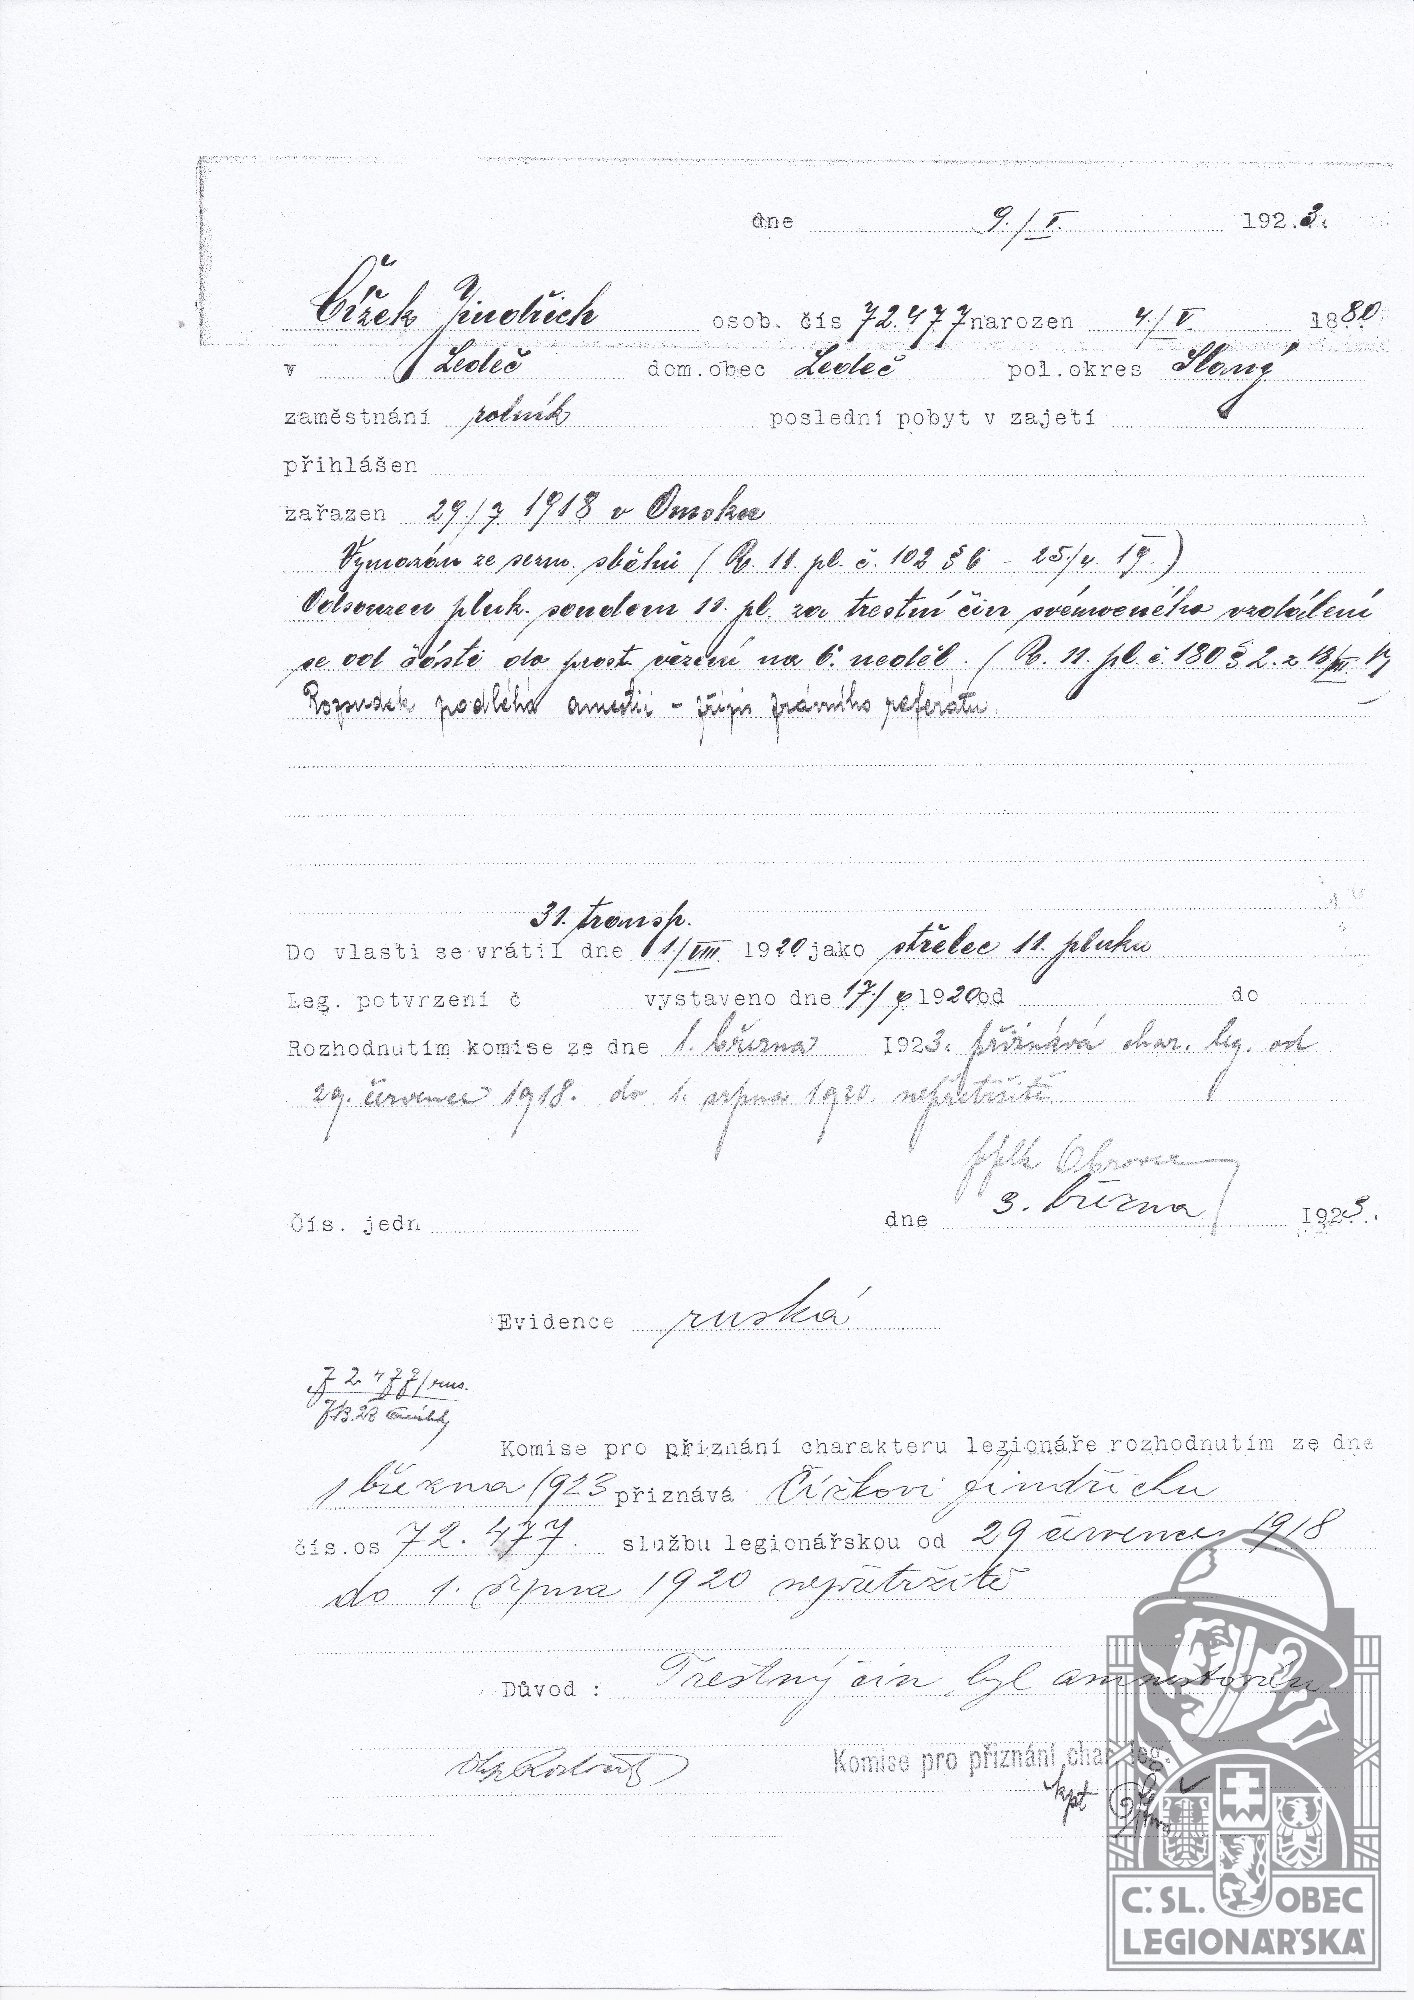 dne 9./V. 1923.
Čížek Jindřich osob. čís 72.477 narozen 4./V. 1880
v Ledeč dom.obec Ledeč pol.okres Slaný
zaměstnání rolník poslední pobyt v zajetí
přihlášen
zařazen 29./7 1918 v Omsku
Vymazán ze sezn. sběhů ( R. 11. pl. č. 102 § 6 - 25/4 19. )
Odsouzen pluk. soudem 11. pl. za trestní čin svémocného vzdálení
se od části do prost. vězení na 6. neděl. ( R. 11. pl. č. 180 § 2. z
Rozsudek podléhá amestii - přípis právního referátu.
31. transp.
Do vlasti se vrátil dne 1./VIII 1920 jako střelec 11. pluku
Leg. potvrzení č vystaveno dne 17./ 1920 od do
Rozhodnutím komise ze dne 1. března 1923. přiznává char. leg. od
29. července 1918. do 1. srpna 1920. nepřetržitě
pplk
Čís. jedn dne 3. března 1923.
Evidence ruská
72477/rus.
Komise pro přiznání charakteru legionáře rozhodnutím ze dne
1 března 1923 přiznává Čížkovi Jindřichu
čís.os 72.477. službu legionářskou od 29 července 1918
do 1. srpna 1920 nepřetržitě
Důvod : Trestný čin byl amnestován
Komise pro přiznání char. leg.
kpt
Č. SL. OBEC
LEGIONÁŘSKÁ